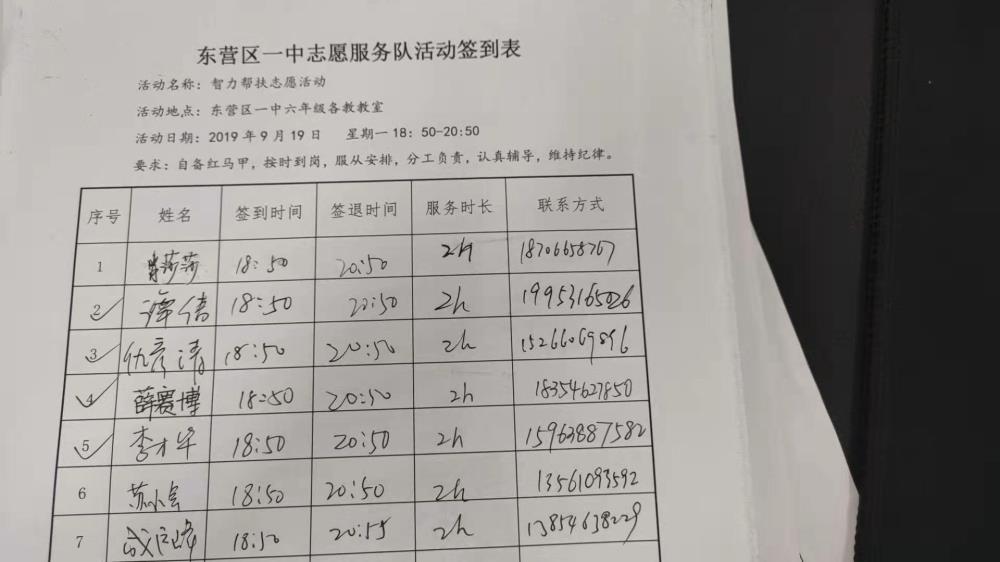 东营区一中志愿服务队活动签到表
活动名称：智力帮扶志愿活动
活动地点：东营区一中六年级各教教室
活动日期：2019年9月19日 星期一18：50-20:50
要求：自备红马甲，按时到岗，服从安排，分工负责，认真辅导，维持纪律。
序号 姓名 签到时间 签退时间 服务时长 联系方式
1 莎莎 18:50 20:50 2h 18706658767
2 谭倩 18:50 20:50 2h 19953165026
3 仇彦涛 18:50 20:50 2h 15266069896
4 薛赛博 18:50 20:50 2h 18354627850
5 李才华 18:50 20:50 2h 15963887582
6 苏小会 18:50 20:50 2h 13561093592
7 18:50 20:55 2h 13854638229